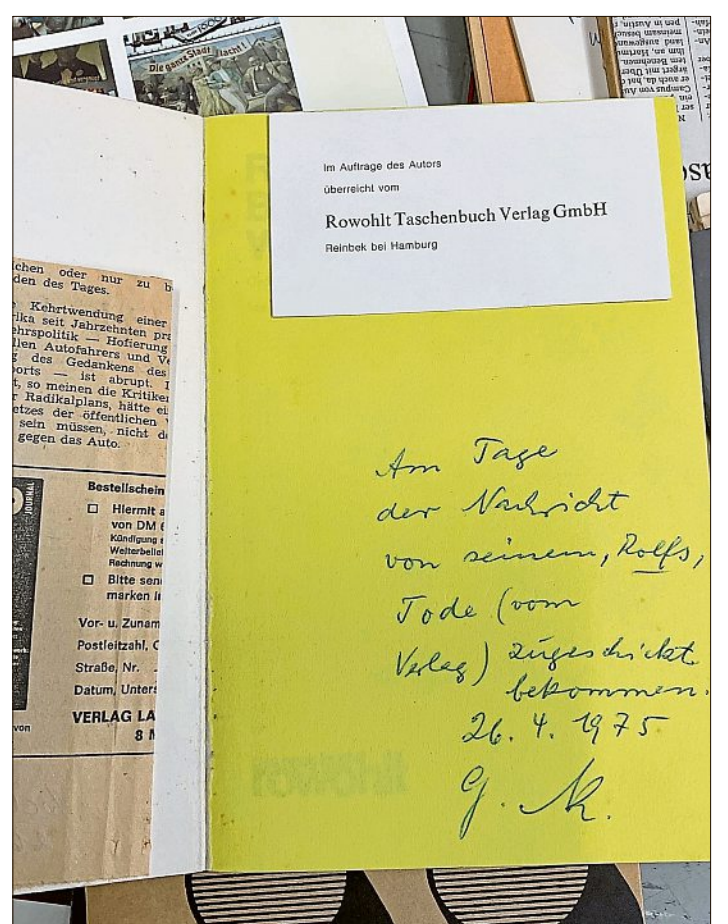 Die ganze Stadt lacht!
Im Auftrage des Autors
überreicht vom
Rowohlt Taschenbuch Verlag GmbH
Reinbek bei Hamburg
chen oder nur zu b
den des Tages.
Kehrtwendung einer
rika seit Jahrzehnten pra
ehrspolitik — Hofierung
llen Autofahrers und Ve
g des Gedankens des
ports — ist abrupt. I
t, so meinen die Kritiker
r Radikalplans, hätte ei
etzes der öffentlichen V
sein müssen, nicht de
gegen das Auto.
JOURNAL
Bestellschein
Hiermit a
von DM 6
Kündigung
Weiterbelie
Rechnung w
Bitte sen
marken i
Vor- u. Zunam
Postleitzahl, O
Straße, Nr.
Datum, Unters
VERLAG LA
8 M
von
Am Tage
der Nachricht
von seinem, Rolfs,
Tode (vom
Verlag) zugeschickt
bekommen.
26. 4. 1975
G. K.
rowohlt
pen in Austin,
meinsam besuc
land ausgewan
ihm an, Hartmu
tem Benehmen.
ärgert mit Über
er auch da, hat
Campus von Au